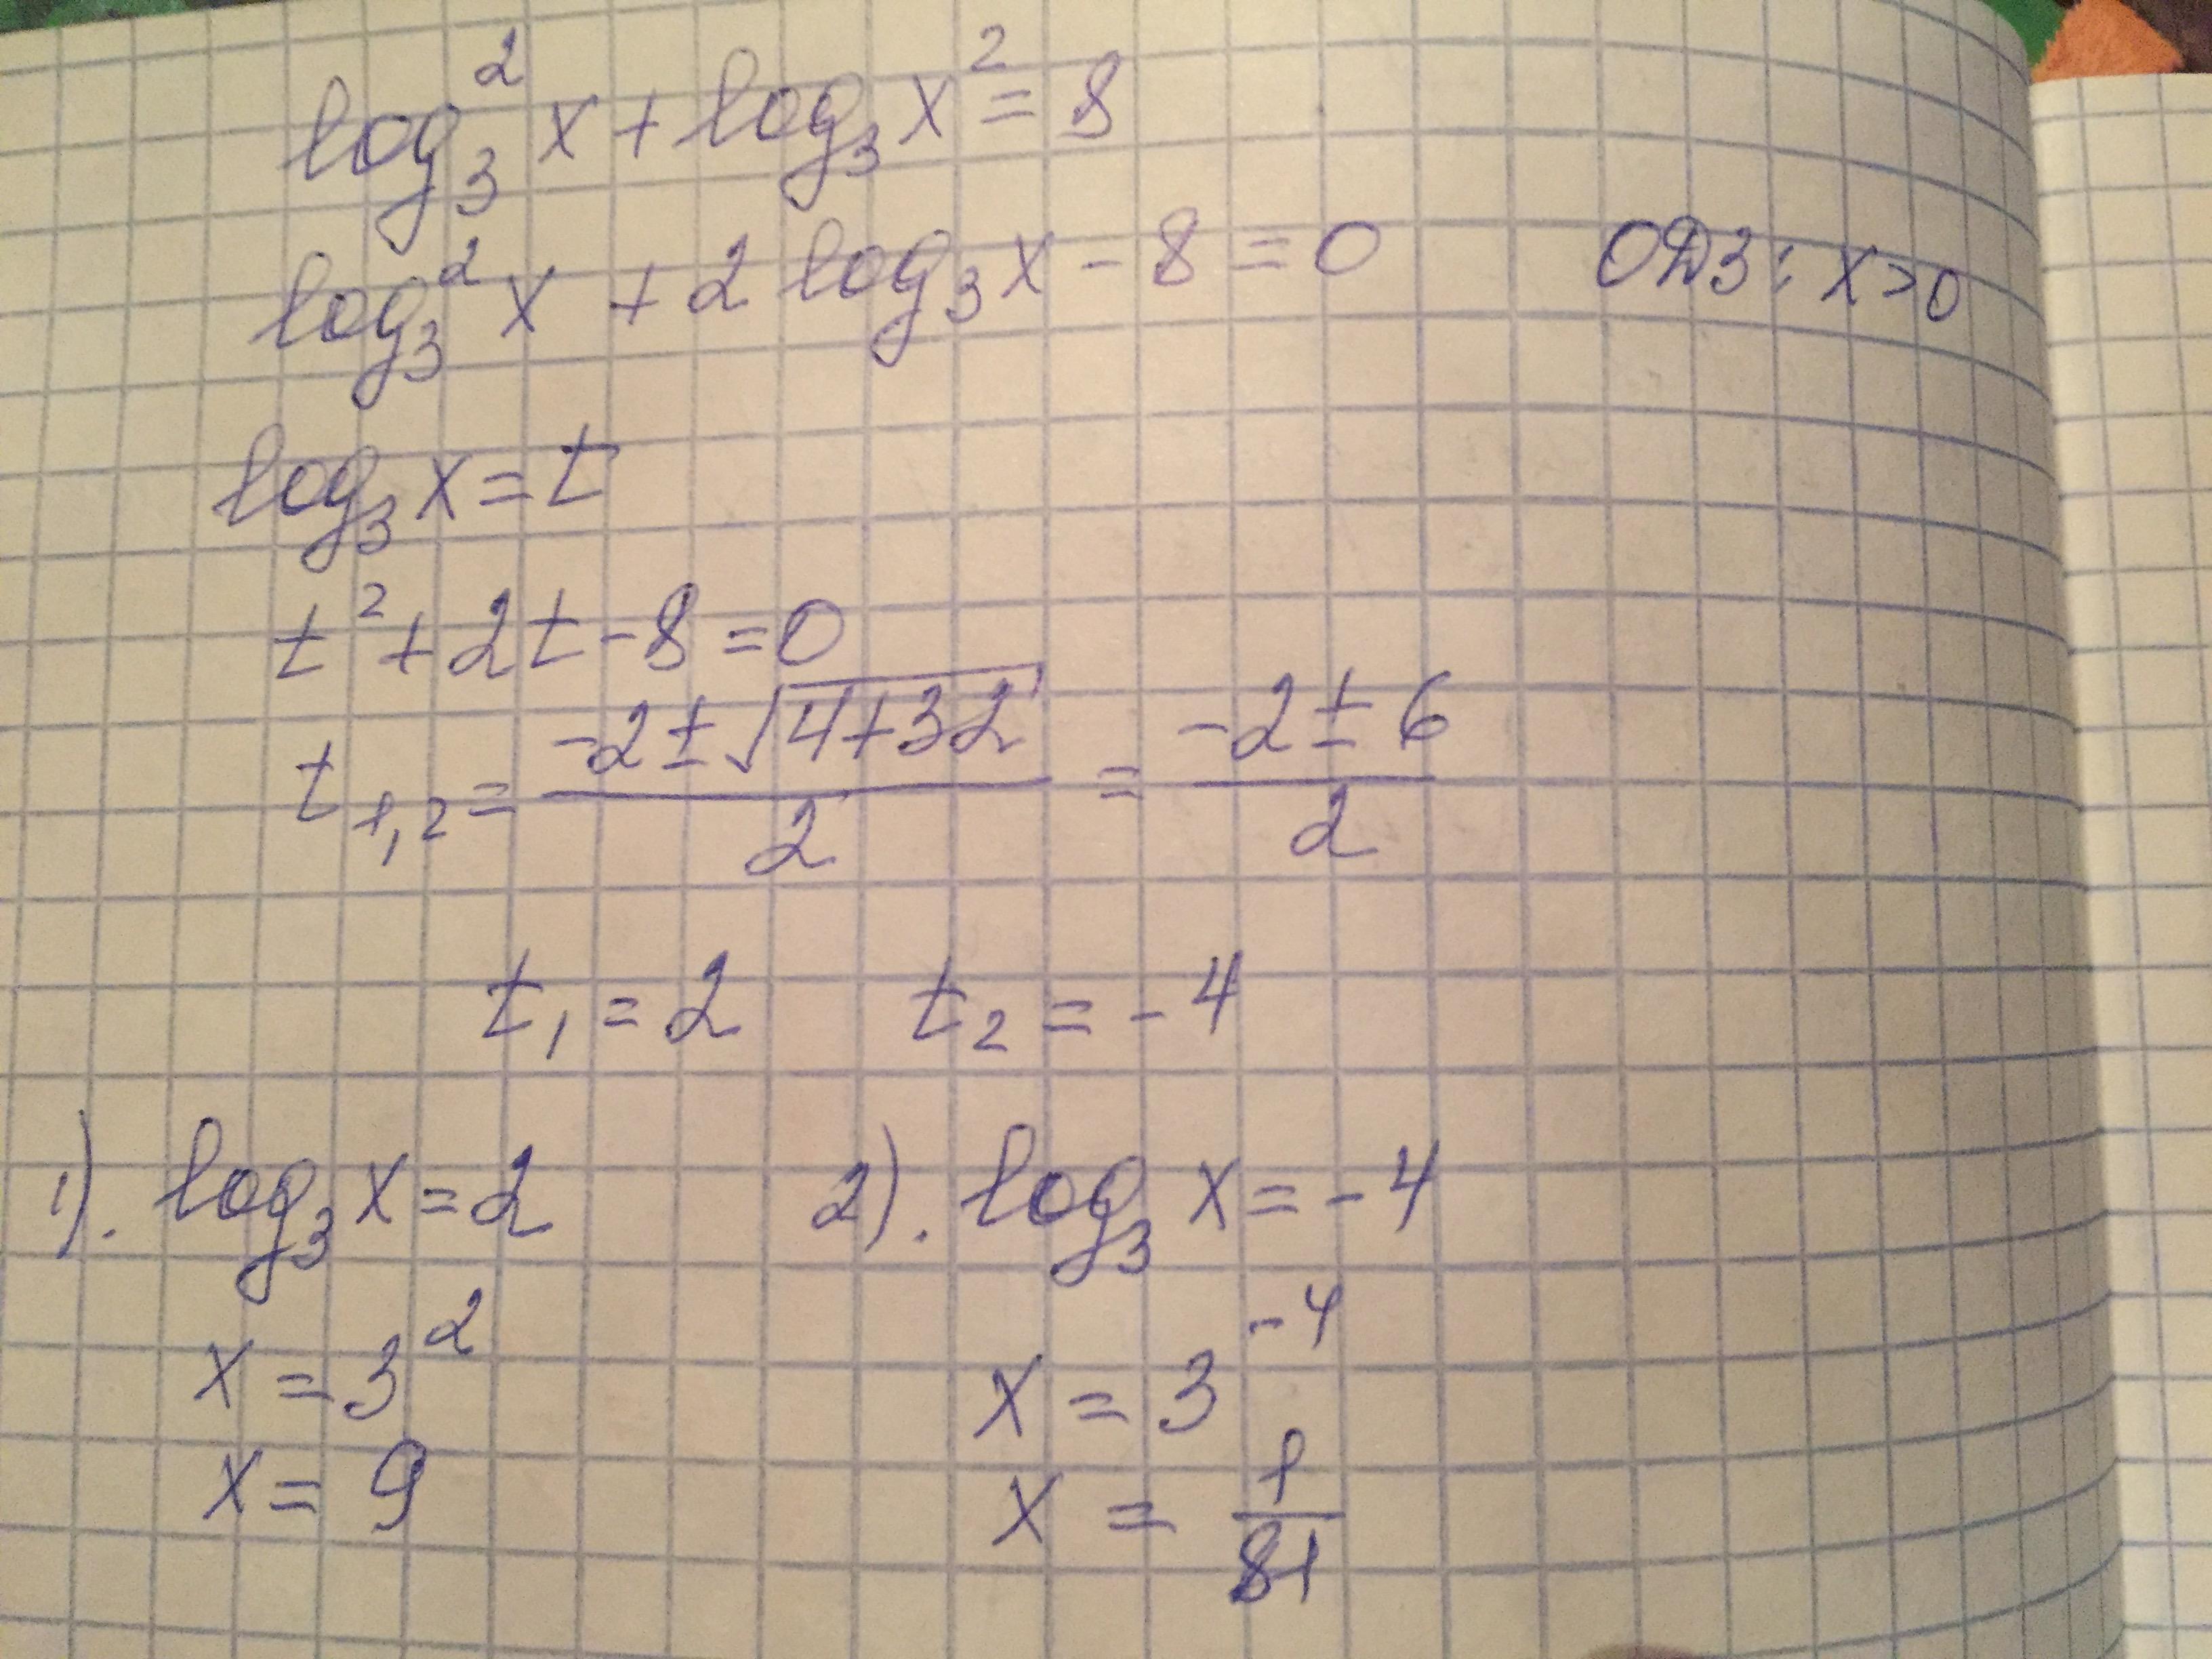 log₃² x + log₃ x² = 8
log₃² x + 2 log₃ x - 8 = 0 ОДЗ: x > 0
log₃ x = t
t² + 2t - 8 = 0
t₁,₂ = (-2 ± √(4+32))/2 = (-2 ± 6)/2
t₁ = 2 t₂ = -4
1). log₃ x = 2 2). log₃ x = -4
x = 3² x = 3⁻⁴
x = 9 x = 1/81